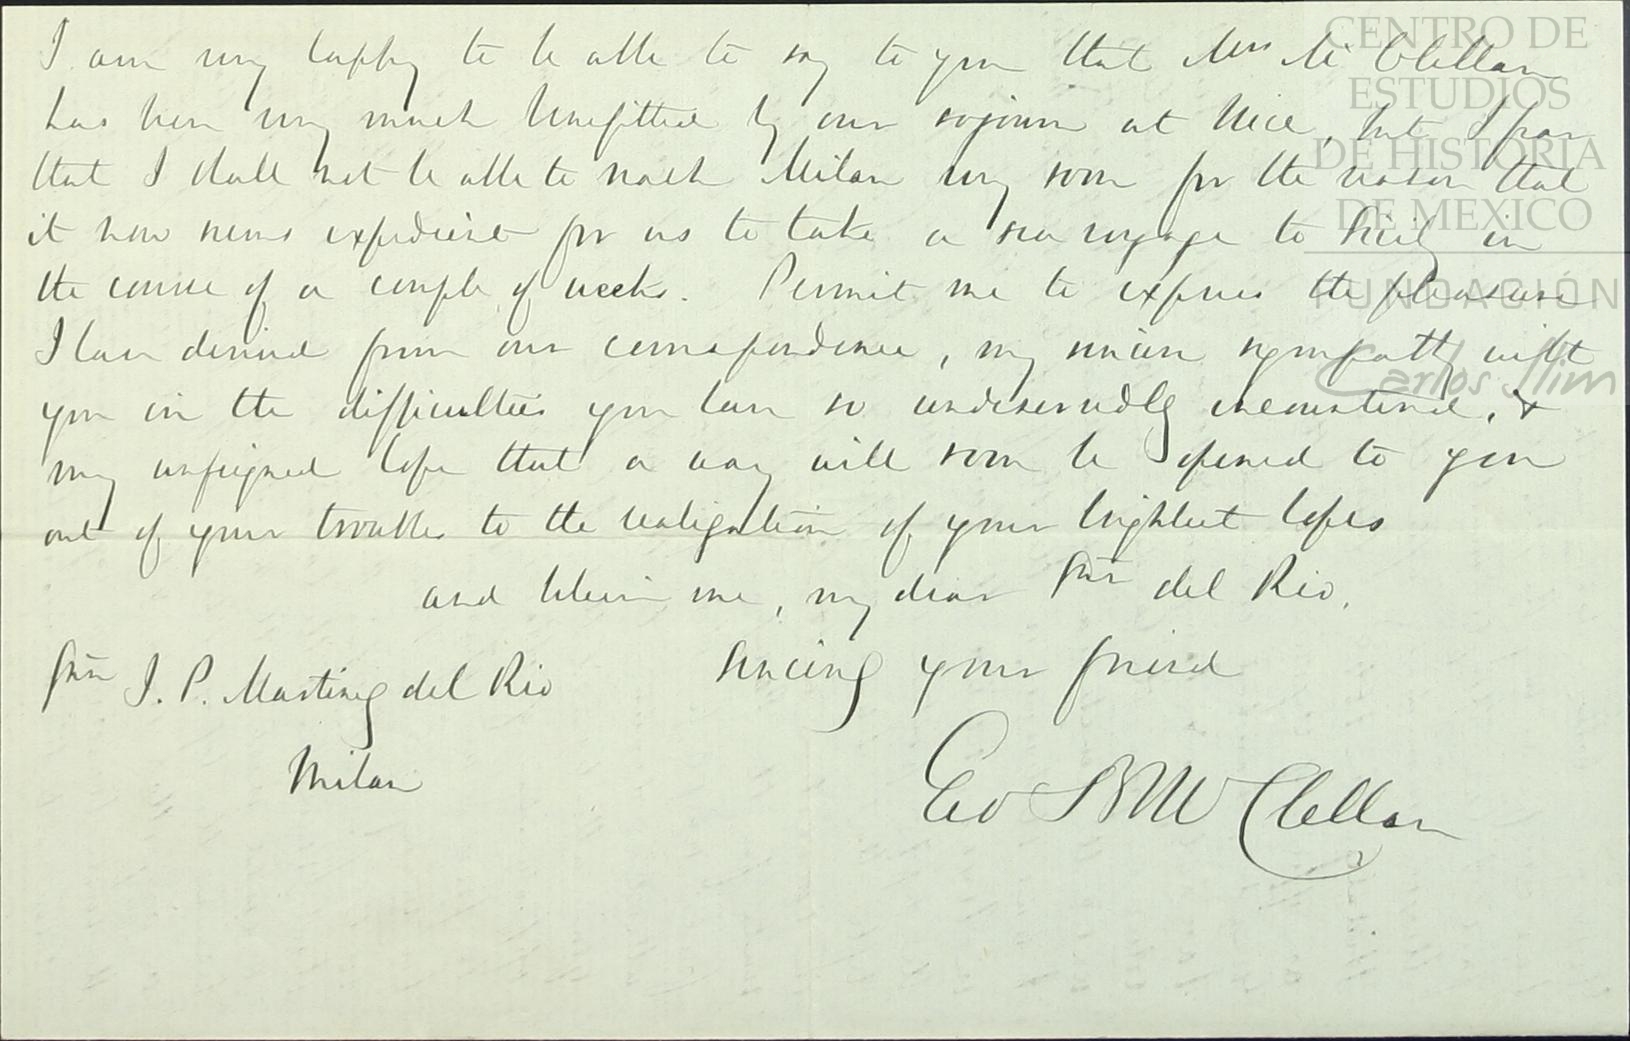 I am very happy to be able to say to you that Mrs McClellan
has been very much benefitted by our sojourn at Nice, but I fear
that I shall not be able to reach Milan very soon for the reason that
it now seems expedient for us to take a sea voyage to Sicily in
the course of a couple of weeks. Permit me to express the pleasure
I have derived from our correspondence, my sincere sympathy with
you in the difficulties you have so undeservedly encountered, &
my unfeigned hope that a way will soon be opened to you
out of your troubles to the realization of your brightest hopes
and believe me, my dear Snr del Rio,
Sincerely your friend
Snr J. P. Martinez del Rio
Milan
Geo B McClellan
CENTRO DE
ESTUDIOS
DE HISTORIA
DE MEXICO
FUNDACIÓN
Carlos Slim